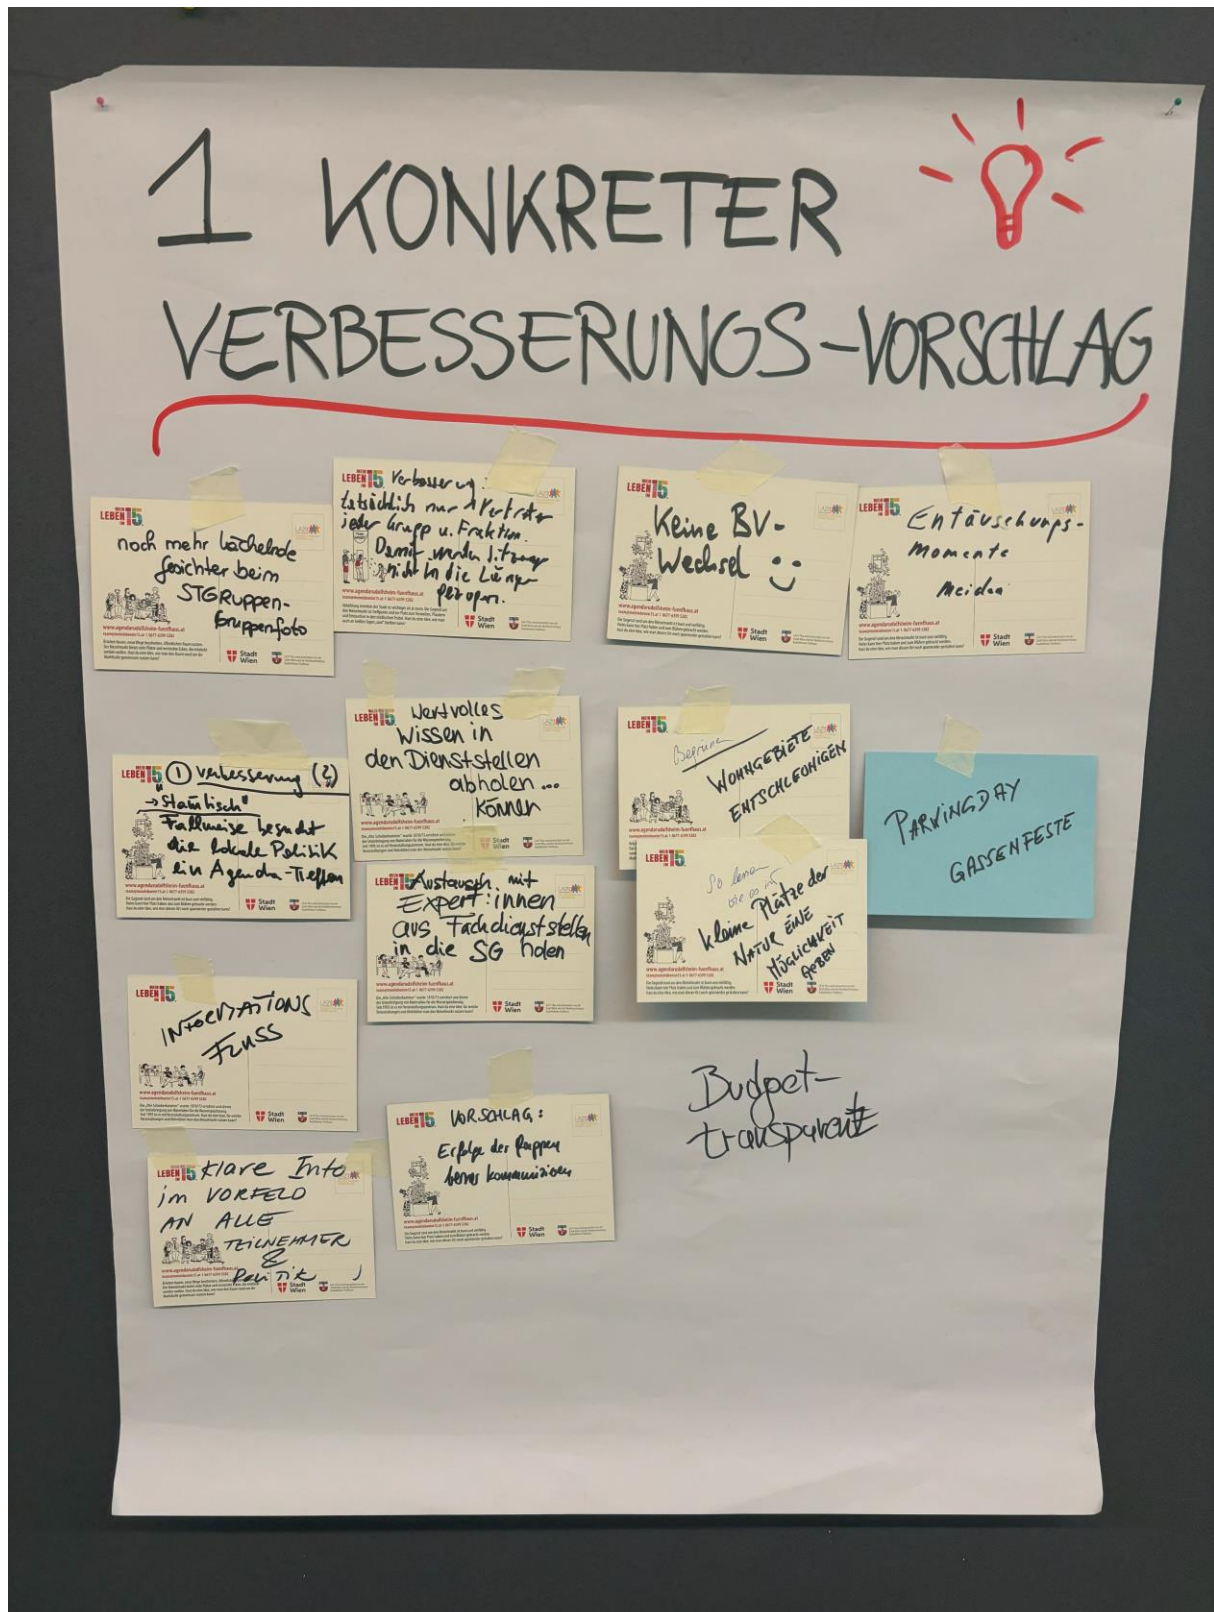 1 KONKRETER
VERBESSERUNGS-VORSCHLAG
LEBEN 15
noch mehr lächelnde
Gesichter beim
STGRuppen-
Gruppenfoto
www.agendarudolfsheim-fuenfhaus.at
Stadt
Wien
LEBEN 15
Verbesserung:
tatsächlich nur 1 Vertreter
jeder Grupp u. Fraktion.
Damit werden Sitzunge
nicht in die Länge
gezogen.
Stadt
Wien
LEBEN 15
Keine BV-
Wechsel
www.agendarudolfsheim-fuenfhaus.at
Stadt
Wien
LEBEN 15
Entäuschungs-
momente
meiden
www.agendarudolfsheim-fuenfhaus.at
Stadt
Wien
LEBEN 15
1 Verbesserung (2)
→ "Stamtisch"
Fallweise besucht
die lokale Politik
ein Agenda-Treffen
www.agendarudolfsheim-fuenfhaus.at
Stadt
Wien
LEBEN 15
Wertvolles
Wissen in
den Dienststellen
abholen ...
können
www.agendarudolfsheim-fuenfhaus.at
Stadt
Wien
LEBEN 15
WOHNGEBIETE
ENTSCHLEUNIGEN
www.agendarudolfsheim-fuenfhaus.at
PARKINGDAY
GASSENFESTE
LEBEN 15
Austausch mit
EXPERT:innen
aus Fachdienststellen
in die SG holen
Stadt
Wien
LEBEN 15
So
kleine Plätze der
NATUR EINE
MÖGLICHKEIT
GEBEN
www.agendarudolfsheim-fuenfhaus.at
Stadt
Wien
LEBEN 15
INFORMATIONS
FLUSS
www.agendarudolfsheim-fuenfhaus.at
Stadt
Wien
LEBEN 15
VORSCHLAG:
Erfolge der Gruppen
besser kommunizieren
www.agendarudolfsheim-fuenfhaus.at
Stadt
Wien
Budget-
transparenz
LEBEN 15
Klare Info
im VORFELD
AN ALLE
TEILNEHMER
&
Politik
www.agendarudolfsheim-fuenfhaus.at
Stadt
Wien